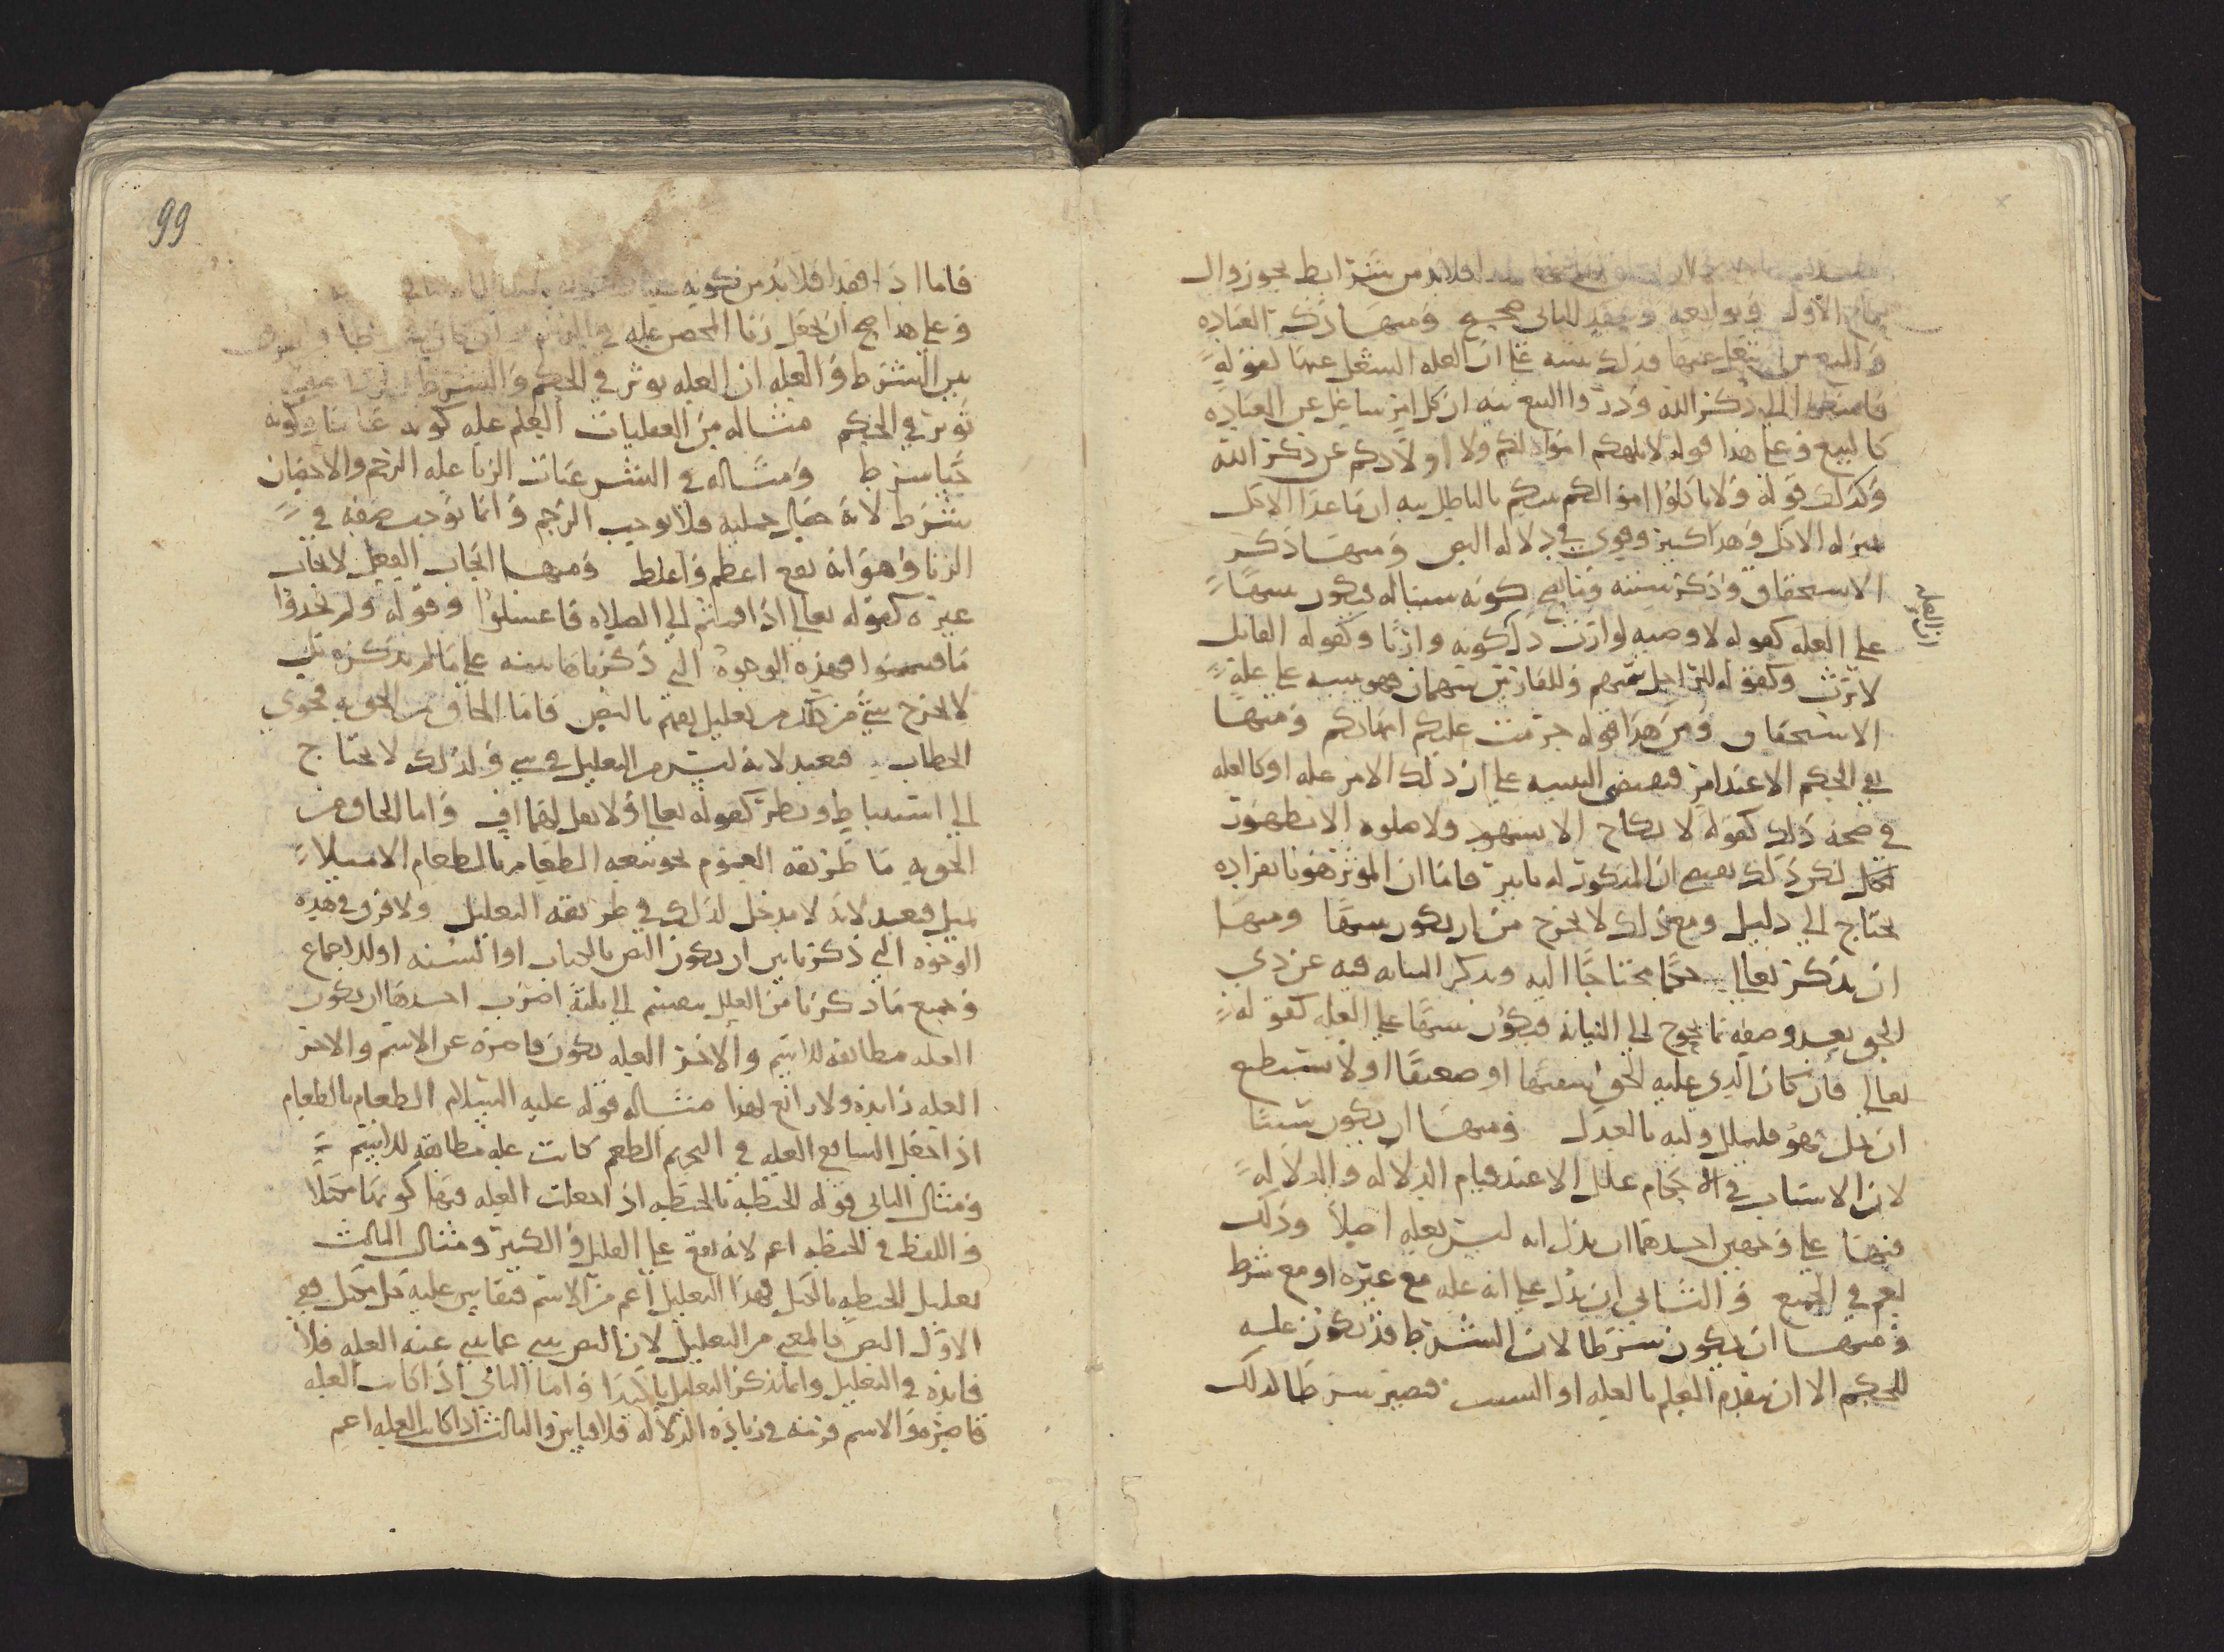 فلابد من شرايط نحو زوال
الاول وتوابعه وعقد للثاني صحيح ومنها ذكر العباده
والمنع من تشغل عنها فذلك تنبيه على ان العله الشغل عنها لقوله
فاسعوا الى ذكر الله وذروا البيع نبه ان كل امر شاغل عن العباده
كالبيع وعلى هذا قوله لا تلهكم اموالكم ولا اولادكم عن ذكر الله
وكذلك قوله ولا تاكلوا اموالكم بينكم بالباطل نبه ان ما عدا الاكل
بمنزله الاكل وهذا كثير وقوي في دلاله النص ومنها ذكر
الاستحقاق وذكر سببه وتابع كونه سببا له فيكون تنبيها
على العله كقوله لا وصيه لوارث دل كونه وارثا وكقوله القاتل
ان العله
لا يرث وكقوله للراجل سهم وللفارس سهمان فهو تنبيه على عله
الاستحقاق ومن هذا قوله حرمت عليكم امهاتكم ومنها
نفي الحكم الا عند امر فيقتضي التنبيه على ان ذلك الامر عله او كالعله
في صحه ذلك كقوله لا نكاح الا بشهود ولا صلوه الا بطهور
لكن ذلك يقتضي ان المذكور له تاثير فاما ان المؤثر هو بانفراده
يحتاج الى دليل ومع ذلك لا يخرج من ان يكون تنبيها ومنها
ان يذكر تعالى حكما محتاجا اليه ويذكر النيابه فيه عن ذي
الحق بعد وصفه بما يحوج الى النيابه فيكون تنبيها على العله كقوله
تعالى فان كان الذي عليه الحق سفيها او ضعيفا او لا يستطيع
ان يمل هو فليملل وليه بالعدل ومنها ان يكون سببا
لان الاسباب في الاحكام علل الا عند قيام الدلاله والدلاله
فيها على وجهين احدهما ان يدل انه ليس بعله اصلا وذلك
يعم في الجميع والثاني ان يدل على انه عله مع غيره او مع شرط
ومنها ان يكون شرطا لان الشرط قد يكون عله
للحكم الا ان يتقدم العلم بالعله او السبب فيصير شرطا لذلك
99
فاما اذا فقدا فلابد من كونه
وعلى هذا صح ان نجعل زنا المحصن عله في
بين الشرط والعله ان العله توثر في الحكم والشرط
توثر في الحكم مثاله من العقليات العلم عله كونه عالما وكونه
حيا شرط ومثاله في الشرعيات الزنا عله الرجم والاحصان
شرط لانه خصال جميله فلا توجب الرجم وانما توجب صفه في
الزنا وهو انه يقع اعظم واغلظ ومنها ايجاب الفعل لايجاب
غيره كقوله تعالى اذا قمتم الى الصلاه فاغسلوا وقوله ولم تجدوا
ما فتيمموا فهذه الوجوه التي ذكرناها تنبيه على ما لم نذكره لكن
لا يخرج شي من ذلك من تعليل يفهم بالنص فاما الحاق من الحق به فحوى
الخطاب فبعيد لانه ليس من التعليل في شي ولذلك لا يحتاج
الى استنباط ونظر كقوله تعالى ولا تقل لهما اف واما الحاق من
الحق به ما طريقه العموم نحو بيعه الطعام بالطعام الا مثلا
بمثل فبعيد لانه لا مدخل لذلك في طريقه التعليل ولا فرق في هذه
الوجوه التي ذكرنا بين ان يكون النص بالكتاب او السنه او للاجماع
وجميع ما ذكرنا من العلل ينقسم الى ثلثه اضرب احدها ان يكون
العله مطابقه للاسم والاخر العله يكون قاصره عن الاسم والاخر
العله زايده ولا رابع لهذا مثاله قوله عليه السلام الطعام بالطعام
اذا جعل الشافعي العله في التحريم الطعم كانت عله مطابقه للاسم
ومثال الثاني قوله الحنطه بالحنطه اذا جعلت العله فيها كونها مكيلا
واللفظ في الحنطه اعم لانه يقع على القليل والكثير ومثال الثالث
تعليل الحنطه بالكيل فهذا التعليل اعم من الاسم فيقاس عليه كل مكيل ففي
الاول النص كالمغني من التعليل لان النص ينبي عما ينبي عنه العله فلا
فايده في التعليل وانما يذكر التعليل تاكيدا واما الثاني اذا كانت العله
قاصره والاسم فرتبه في زياده الدلاله فلا قياس والثالث اذا كانت العله اعم